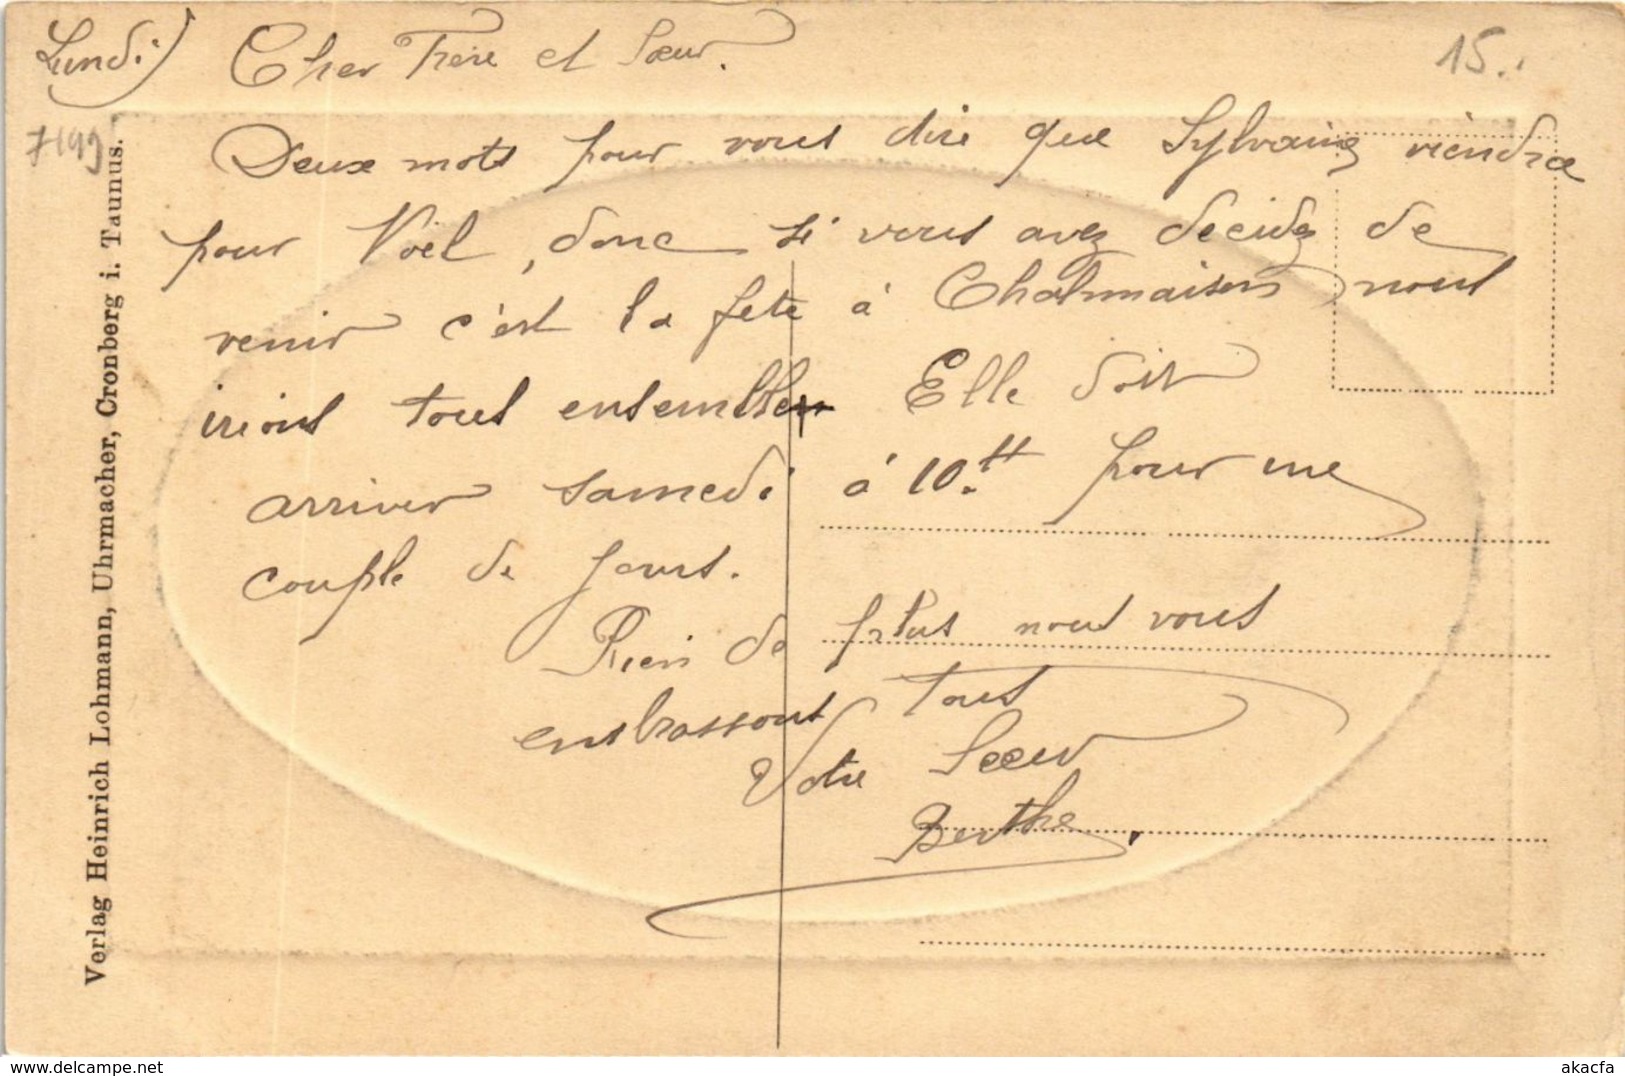 Lundi) Cher Frère et Sœur.
15.
7199
Deux mots pour vous dire que Sylvaine viendra
pour Noël, donc si vous avez decidez de
venir c'est la fete à Chalmaison nous
irions tous ensemble Elle doit
arriver samedi à 10.h pour une
couple de jours.
Rien de plus nous vous
embrassons tous
Votre Sœur
Berthe.
Verlag Heinrich Lohmann, Uhrmacher, Cronberg i. Taunus.
akacfa